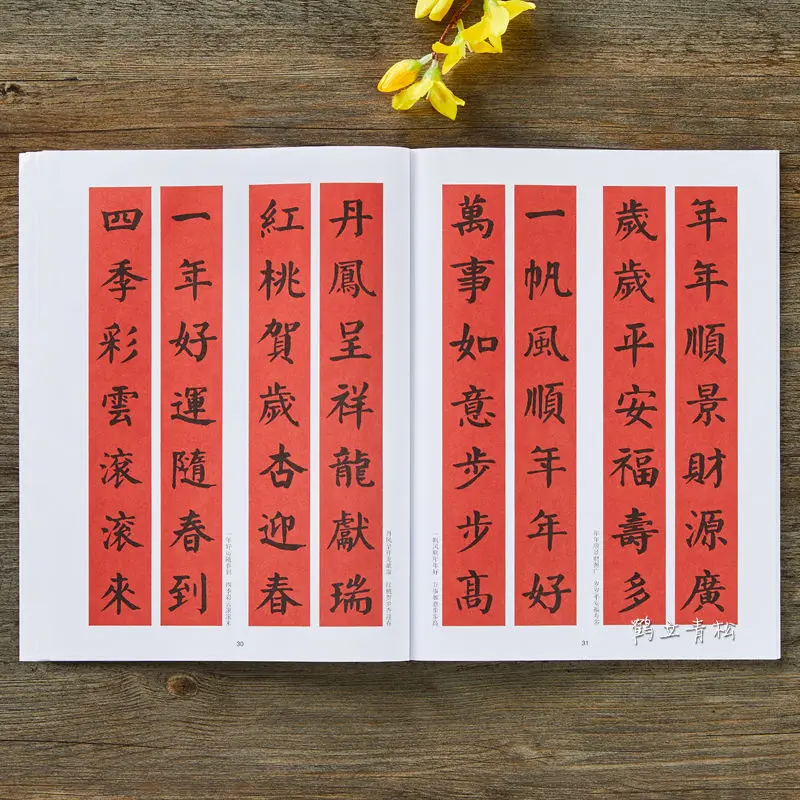 丹鳳呈祥龍獻瑞
紅桃賀歲杏迎春
丹凤呈祥龙献瑞 红桃贺岁杏迎春
一年好運隨春到
四季彩雲滚滚來
一年好运随春到 四季彩云滚滚来
30
年年順景財源廣
歲歲平安福壽多
年年顺景财源广 岁岁平安福寿多
一帆風順年年好
萬事如意步步高
一帆风顺年年好 万事如意步步高
31
鹤立青松